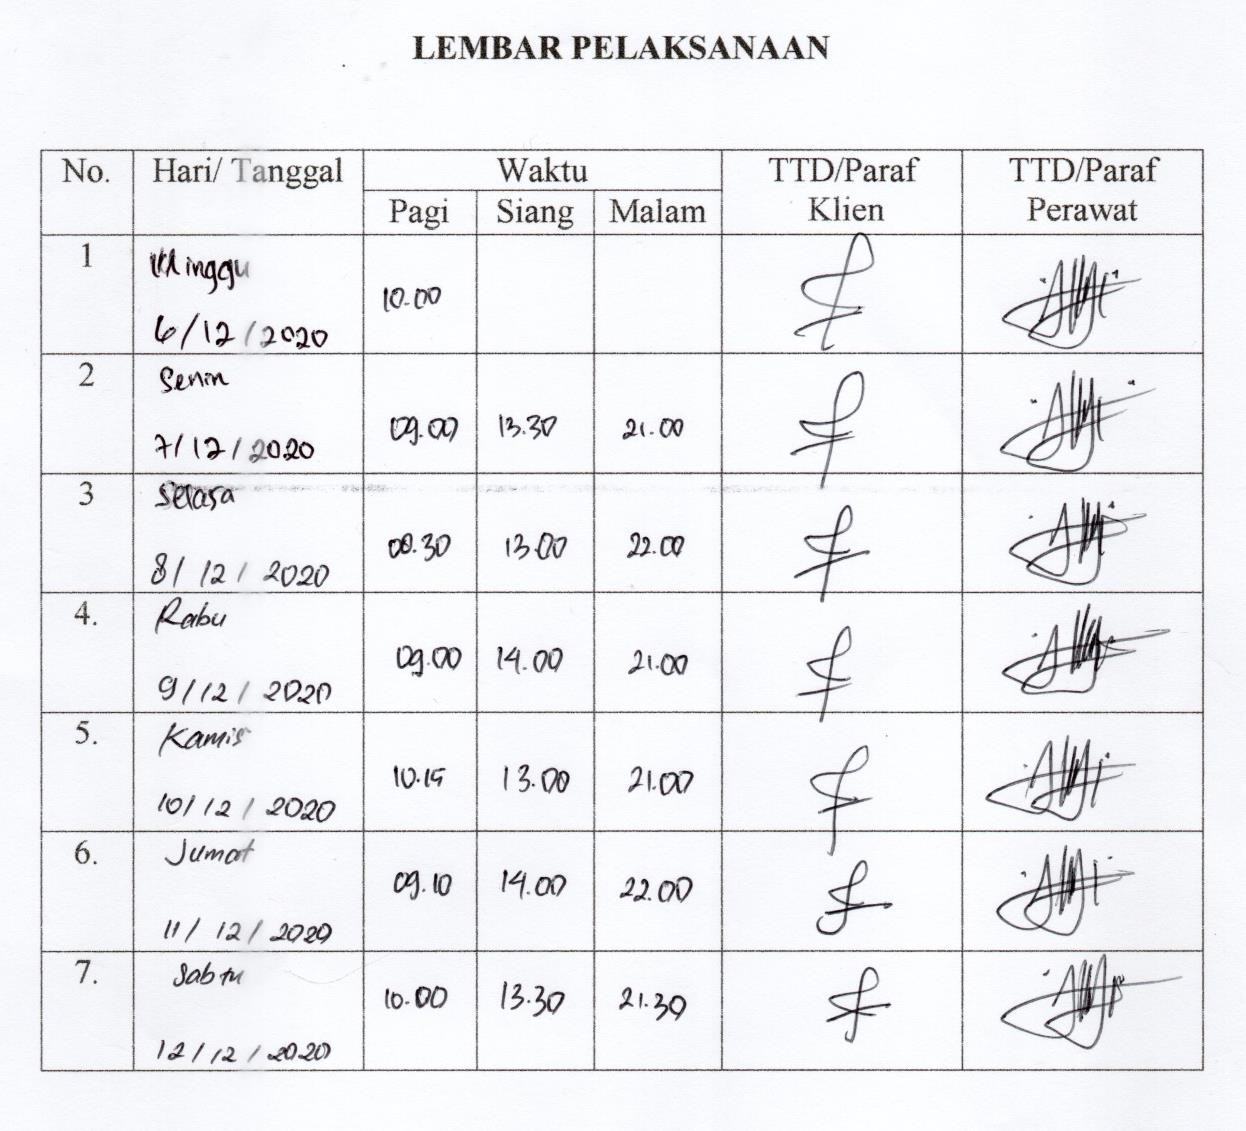 LEMBAR PELAKSANAAN
No. Hari/ Tanggal Waktu TTD/Paraf Klien TTD/Paraf Perawat
Pagi Siang Malam
1 Minggu
6/12/2020 10.00
2 Senin
7/12/2020 09.00 13.30 21.00
3 Selasa
8/12/2020 08.30 13.00 22.00
4. Rabu
9/12/2020 09.00 14.00 21.00
5. Kamis
10/12/2020 10.15 13.00 21.00
6. Jumat
11/12/2020 09.10 14.00 22.00
7. Sabtu
12/12/2020 10.00 13.30 21.30